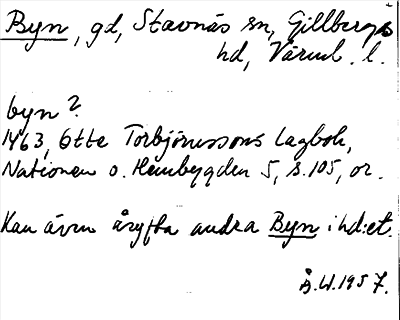 Byn, gd, Stavnäs sn, Gillbergs
hd, Värml. l.
byn?
1463, Otte Torbjörnssons lagbok,
Nationen o. Hembygden 5, s. 105, or.
Kan även åsyfta andra Byn i hd:et.
Å.W. 1957.